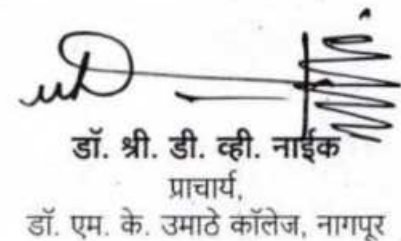 डॉ. श्री. डी. व्ही. नाईक
प्राचार्य,
डॉ. एम. के. उमाठे कॉलेज, नागपूर